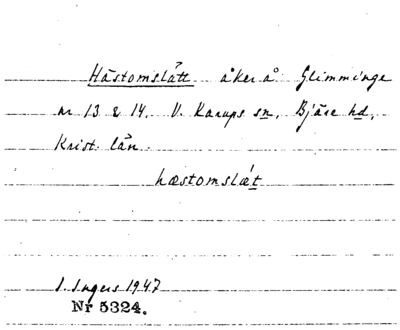 Hästomslått åker å Glimminge
nr 13 & 14. V. Karups sn, Bjäre hd,
Krist. län.
hæstomslȧt
I. Ingers 1947
Nr 5324.